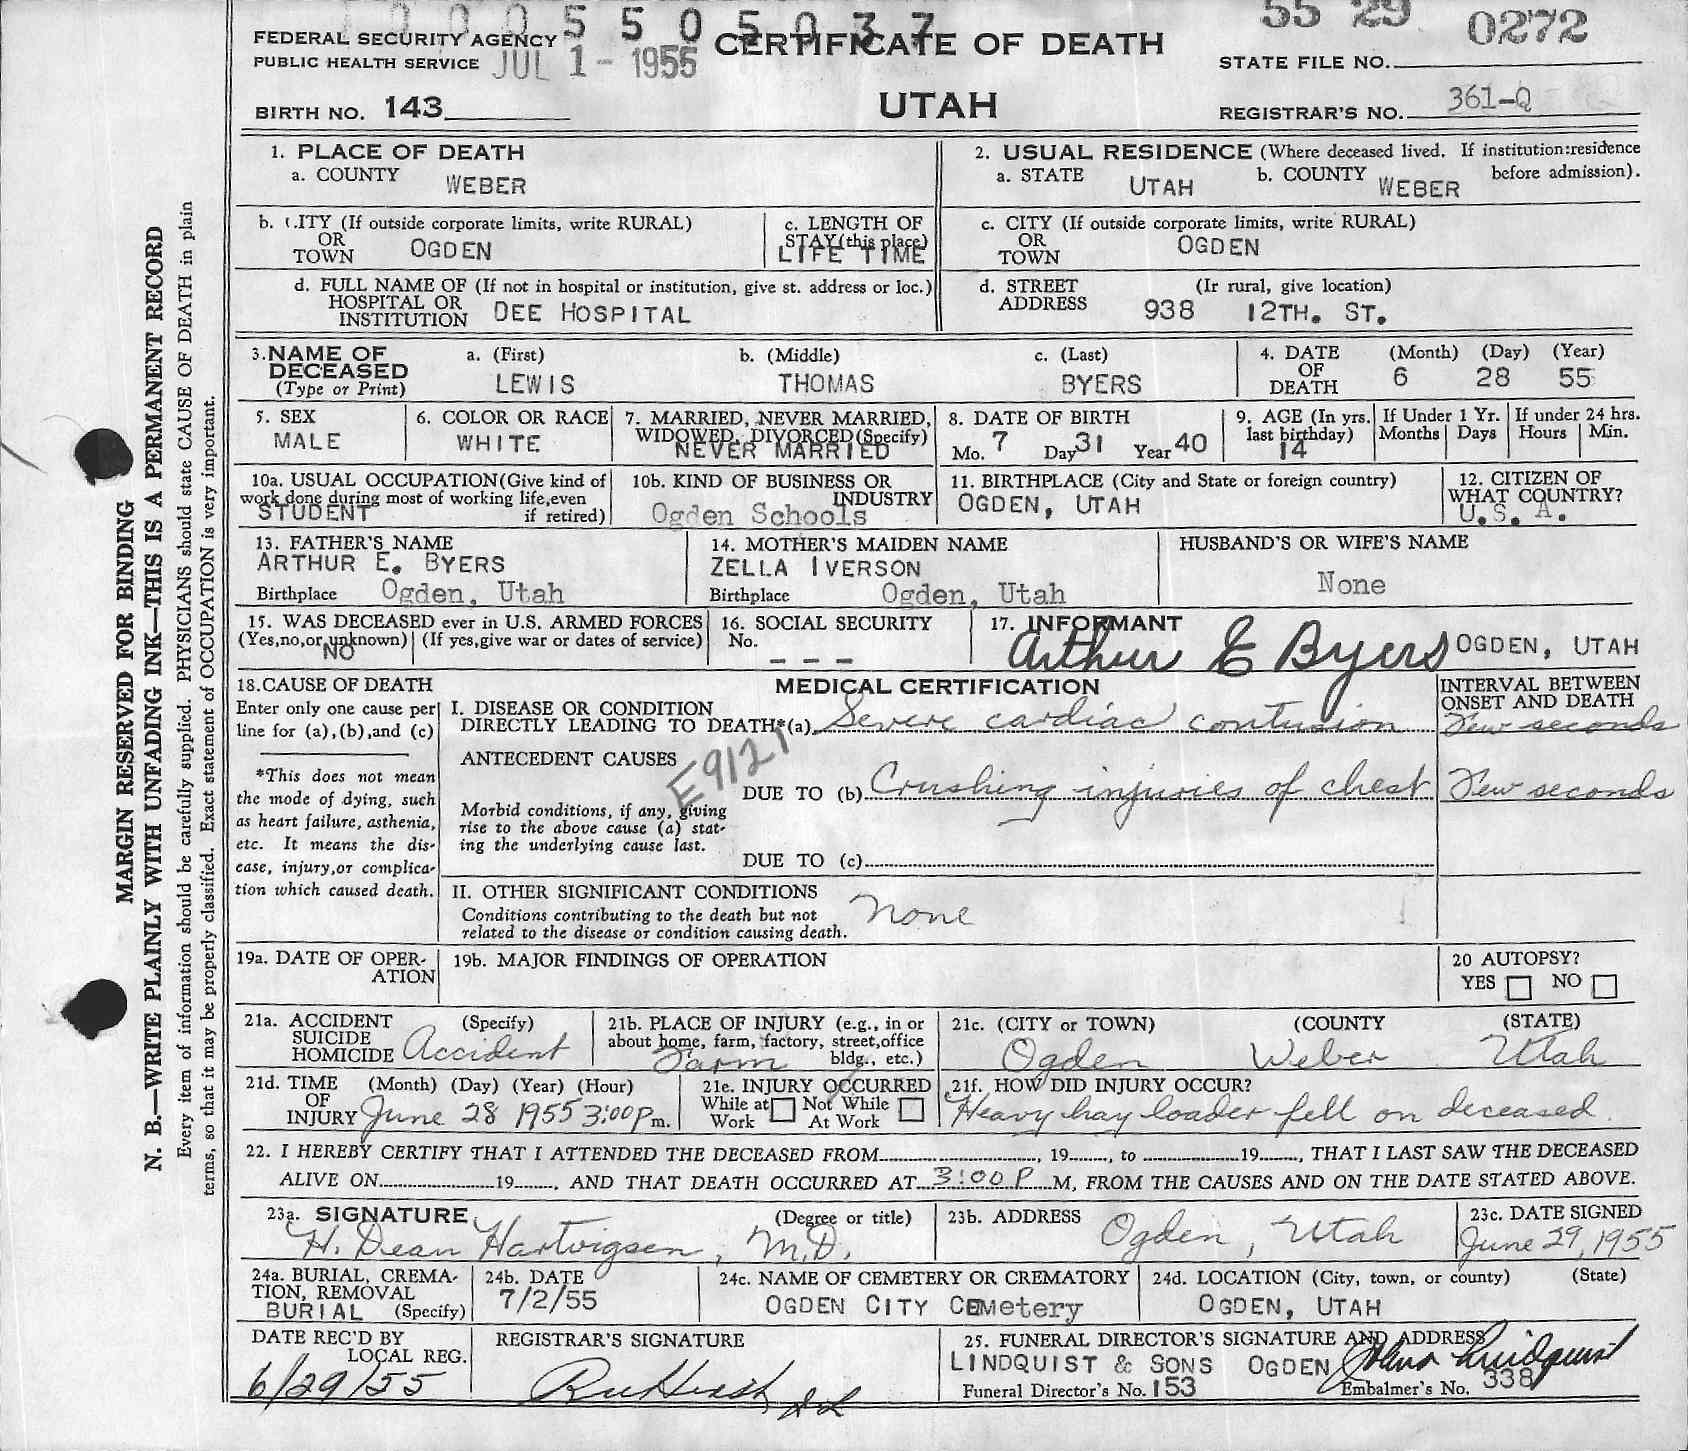 0005505037
55 29 0272
FEDERAL SECURITY AGENCY
PUBLIC HEALTH SERVICE JUL 1 - 1955
CERTIFICATE OF DEATH
STATE FILE NO.
BIRTH NO. 143
UTAH
REGISTRAR'S NO. 361-Q
MARGIN RESERVED FOR BINDING
N. B.—WRITE PLAINLY WITH UNFADING INK—THIS IS A PERMANENT RECORD
Every item of information should be carefully supplied. PHYSICIANS should state CAUSE OF DEATH in plain
terms, so that it may be properly classified. Exact statement of OCCUPATION is very important.
1. PLACE OF DEATH
a. COUNTY WEBER
2. USUAL RESIDENCE (Where deceased lived. If institution:residence
a. STATE UTAH b. COUNTY WEBER before admission).
b. CITY (If outside corporate limits, write RURAL)
OR
TOWN OGDEN
c. LENGTH OF
STAY (this place)
LIFE TIME
c. CITY (If outside corporate limits, write RURAL)
OR
TOWN OGDEN
d. FULL NAME OF (If not in hospital or institution, give st. address or loc.)
HOSPITAL OR
INSTITUTION DEE HOSPITAL
d. STREET (Ir rural, give location)
ADDRESS 938 12TH. ST.
3. NAME OF
DECEASED
(Type or Print)
a. (First)
LEWIS
b. (Middle)
THOMAS
c. (Last)
BYERS
4. DATE
OF
DEATH
(Month) (Day) (Year)
6 28 55
5. SEX
MALE
6. COLOR OR RACE
WHITE
7. MARRIED, NEVER MARRIED,
WIDOWED, DIVORCED (Specify)
NEVER MARRIED
8. DATE OF BIRTH
Mo. 7 Day 31 Year 40
9. AGE (In yrs.
last birthday)
14
If Under 1 Yr.
Months Days
If under 24 hrs.
Hours Min.
10a. USUAL OCCUPATION (Give kind of
work done during most of working life, even
STUDENT if retired)
10b. KIND OF BUSINESS OR
INDUSTRY
Ogden Schools
11. BIRTHPLACE (City and State or foreign country)
OGDEN, UTAH
12. CITIZEN OF
WHAT COUNTRY?
U.S.A.
13. FATHER'S NAME
ARTHUR E. BYERS
Birthplace Ogden, Utah
14. MOTHER'S MAIDEN NAME
ZELLA IVERSON
Birthplace Ogden, Utah
HUSBAND'S OR WIFE'S NAME
None
15. WAS DECEASED ever in U.S. ARMED FORCES
(Yes, no, or unknown) (If yes, give war or dates of service)
NO
16. SOCIAL SECURITY
No.
- - -
17. INFORMANT
Arthur E Byers OGDEN, UTAH
18. CAUSE OF DEATH
Enter only one cause per
line for (a), (b), and (c)
*This does not mean
the mode of dying, such
as heart failure, asthenia,
etc. It means the dis-
ease, injury, or complica-
tion which caused death.
MEDICAL CERTIFICATION
INTERVAL BETWEEN
ONSET AND DEATH
I. DISEASE OR CONDITION
DIRECTLY LEADING TO DEATH* (a) Severe cardiac contusion Few seconds
ANTECEDENT CAUSES
E9121
DUE TO (b) Crushing injuries of chest Few seconds
Morbid conditions, if any, giving
rise to the above cause (a) stat-
ing the underlying cause last.
DUE TO (c)
II. OTHER SIGNIFICANT CONDITIONS
Conditions contributing to the death but not
related to the disease or condition causing death.
None
19a. DATE OF OPER-
ATION
19b. MAJOR FINDINGS OF OPERATION
20 AUTOPSY?
YES NO
21a. ACCIDENT (Specify)
SUICIDE
HOMICIDE Accident
21b. PLACE OF INJURY (e.g., in or
about home, farm, factory, street, office
bldg., etc.)
Farm
21c. (CITY or TOWN) (COUNTY (STATE)
Ogden Weber Utah
21d. TIME (Month) (Day) (Year) (Hour)
OF
INJURY June 28 1955 3:00 P m.
21e. INJURY OCCURRED
While at Work Not While At Work
21f. HOW DID INJURY OCCUR?
Heavy hay loader fell on deceased.
22. I HEREBY CERTIFY THAT I ATTENDED THE DECEASED FROM , 19 , to 19 , THAT I LAST SAW THE DECEASED
ALIVE ON 19 , AND THAT DEATH OCCURRED AT 3:00 P M, FROM THE CAUSES AND ON THE DATE STATED ABOVE.
23a. SIGNATURE (Degree or title)
H. Dean Hartvigsen, M.D.
23b. ADDRESS
Ogden, Utah
23c. DATE SIGNED
June 29, 1955
24a. BURIAL, CREMA-
TION, REMOVAL
BURIAL (Specify)
24b. DATE
7/2/55
24c. NAME OF CEMETERY OR CREMATORY
OGDEN CITY CEMetery
24d. LOCATION (City, town, or county) (State)
OGDEN, UTAH
DATE REC'D BY
LOCAL REG.
6/29/55
REGISTRAR'S SIGNATURE
25. FUNERAL DIRECTOR'S SIGNATURE AND ADDRESS
LINDQUIST & SONS OGDEN
Funeral Director's No. 153 Embalmer's No. 338